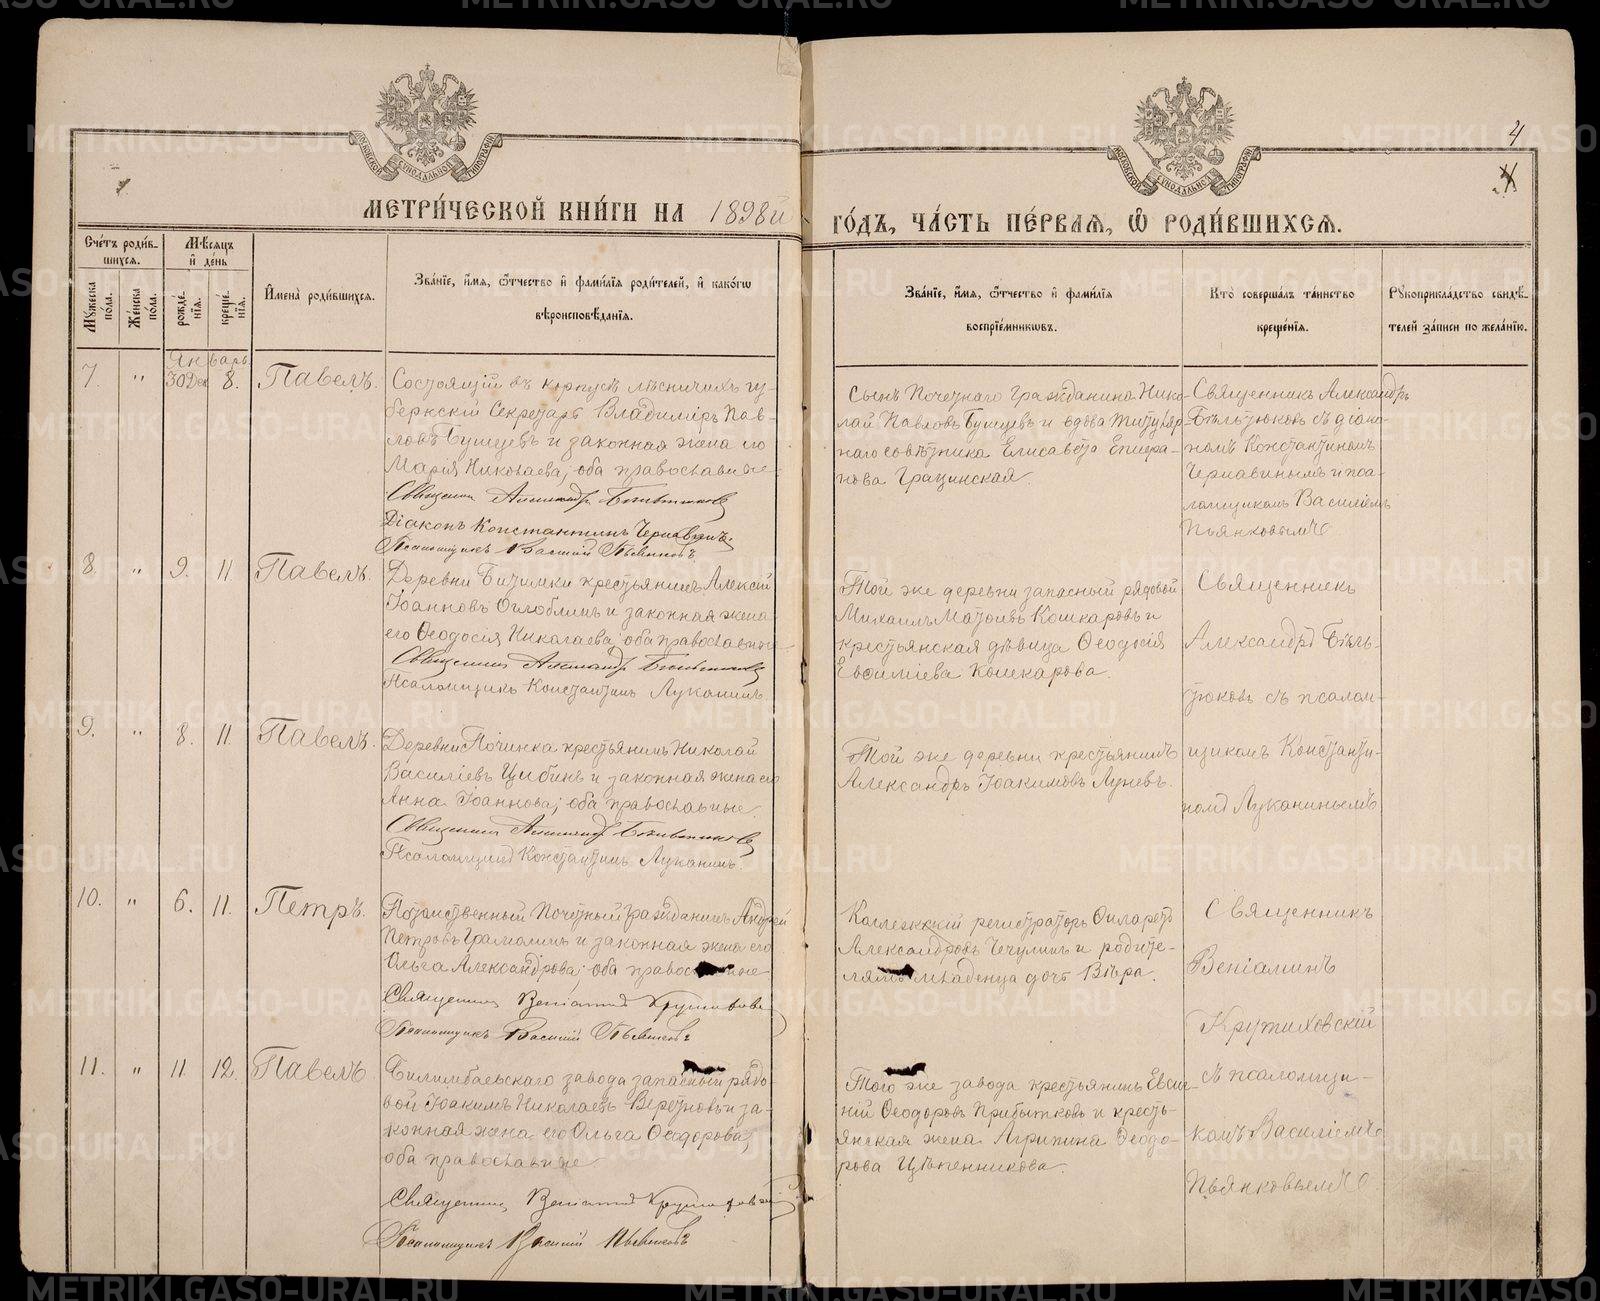 4
МЕТРИ́ЧЕСКОЙ КНИ́ГИ НА 1898й ГО́ДЪ, ЧА́СТЬ ПЕ́РВАЯ, Ѿ РОДИ́ВШИХСЯ.
Сче́тъ роди́в-
шихся.
Мꙋжеска по́ла.
Же́нска по́ла.
Мѣ́сяцъ
и҆ де́нь
рожде́нїя.
креще́нїя.
И҆мена̀ роди́вшихся.
Зва́нїе, и҆́мя, ѻ҆́тчество и҆ фами́лїя роди́телей, и҆ како́гѡ
вѣроисповѣ́данїя.
Зва́нїе, и҆́мя, ѻ҆́тчество и҆ фами́лїя
воспрїе́мникѡвъ.
Кто̀ соверша́лъ та́инство
креще́нїя.
Рꙋкоприкла́дство свидѣ́-
телей за́писи по жела́нїю.
Январь
7. " 30 Дек 8. Павелъ.
Состоящій въ корпусѣ лѣсничихъ гу-
бернскій Секретарь Владиміръ Пав-
ловъ Бушуевъ и законная жена его
Марія Николаева; оба православные
Священникъ Александръ Бѣльтюковъ
Діаконъ Константинъ Чернавинъ
Псаломщикъ Василій Пьянковъ
Сынъ Почетнаго Гражданина Нико-
лай Павловъ Бушуевъ и вдова Титуляр-
наго совѣтника Елисавета
Грацинская.
Священникъ Александръ
Бѣльтюковъ съ діако-
номъ Константиномъ
Чернавинымъ и пса-
ломщикомъ Василіемъ
Пьянковымъ
8. " 9. 11. Павелъ.
Деревни Битимки крестьянинъ Алексій
Іоанновъ Оглоблинъ и законная жена
его Ѳеодосія Николаева; оба православные
Священникъ Александръ Бѣльтюковъ
Псаломщикъ Константинъ Луканинъ.
Той же деревни запасный рядовой
Михаилъ Кошкаровъ и
крестьянская дѣвица Ѳеодосія
Евѳиміева Кошкарова.
Священникъ
Александръ Бѣль-
тюковъ съ псалом-
щикомъ Константи-
номъ Луканинымъ
9. " 8. 11. Павелъ.
Деревни Починка крестьянинъ Николай
Василіевъ Цибинъ и законная жена его
Анна Іоаннова; оба православные.
Священникъ Александръ Бѣльтюковъ
Псаломщикъ Константинъ Луканинъ.
Той же деревни крестьянинъ
Александръ Іоакимовъ Луневъ.
10. " 6. 11. Петръ.
Потомственный Почетный Гражданинъ Андрей
Петровъ и законная жена его
Ольга Александрова; оба православные
Священникъ Веніаминъ Кружиховскій
Псаломщикъ Василій Пьянковъ
Коллежскій регистраторъ Филаретъ
Александровъ Чечулинъ и родите-
лямъ младенца дочь Вѣра.
Священникъ
Веніаминъ
Кружиховскій
съ псаломщи-
комъ Василіемъ
Пьянковымъ
11. " 11. 12. Павелъ.
Билимбаевскаго завода запасный рядо-
вой Іоакимъ Николаевъ и за-
конная жена его Ольга Ѳеодорова;
оба православные
Священникъ Веніаминъ Кружиховскій
Псаломщикъ Василій Пьянковъ
Того же завода крестьянинъ Евсиг-
ній Ѳеодоровъ Прибытковъ и кресть-
янская жена Агрипина Ѳеодо-
рова Цѣпенникова.
METRIKI.GASO-URAL.RU